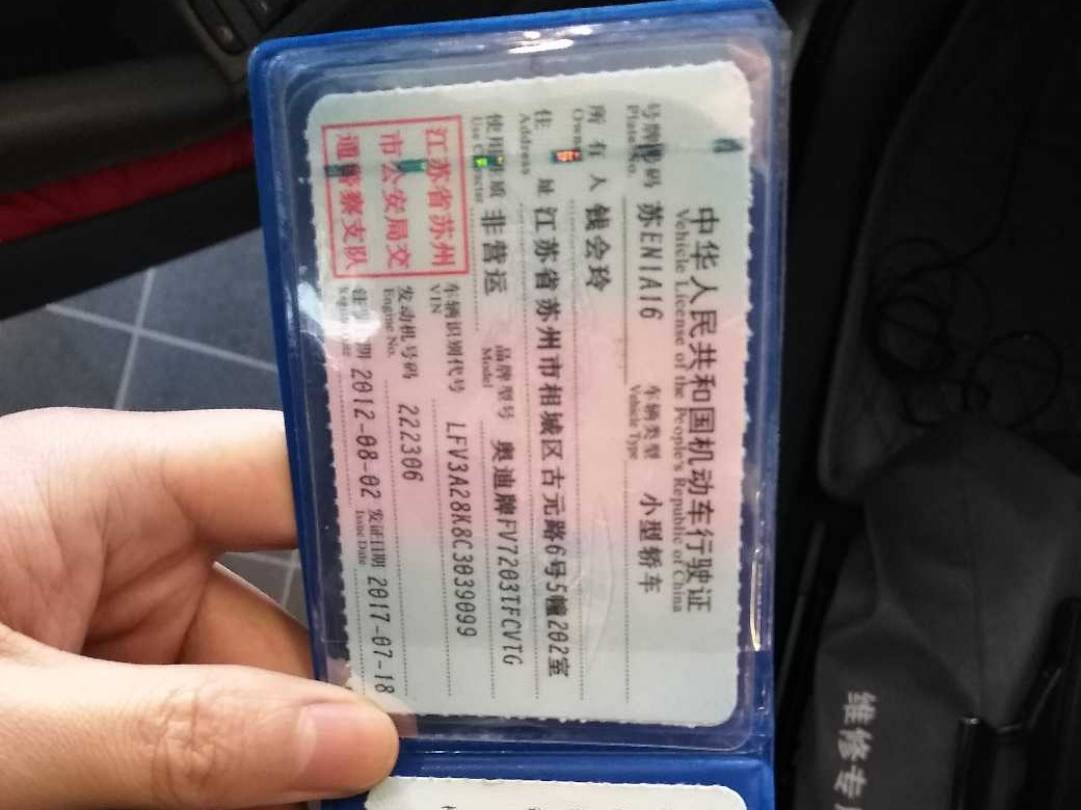 中华人民共和国机动车行驶证
Vehicle License of the People's Republic of China
号牌号码 苏EN1A16 车辆类型 小型轿车
Plate No. Vehicle Type
所有人 钱会玲
Owner
住址 江苏省苏州市相城区古元路6号5幢202室
Address
使用性质 非营运 品牌型号 奥迪牌FV7203TFCVTG
Use Character Model
江苏省苏州
市公安局交
通警察支队
车辆识别代号 LFV3A28K8C3039099
VIN
发动机号码 222306
Engine No.
注册日期 2012-08-02 发证日期 2017-07-18
Issue Date
维修专用